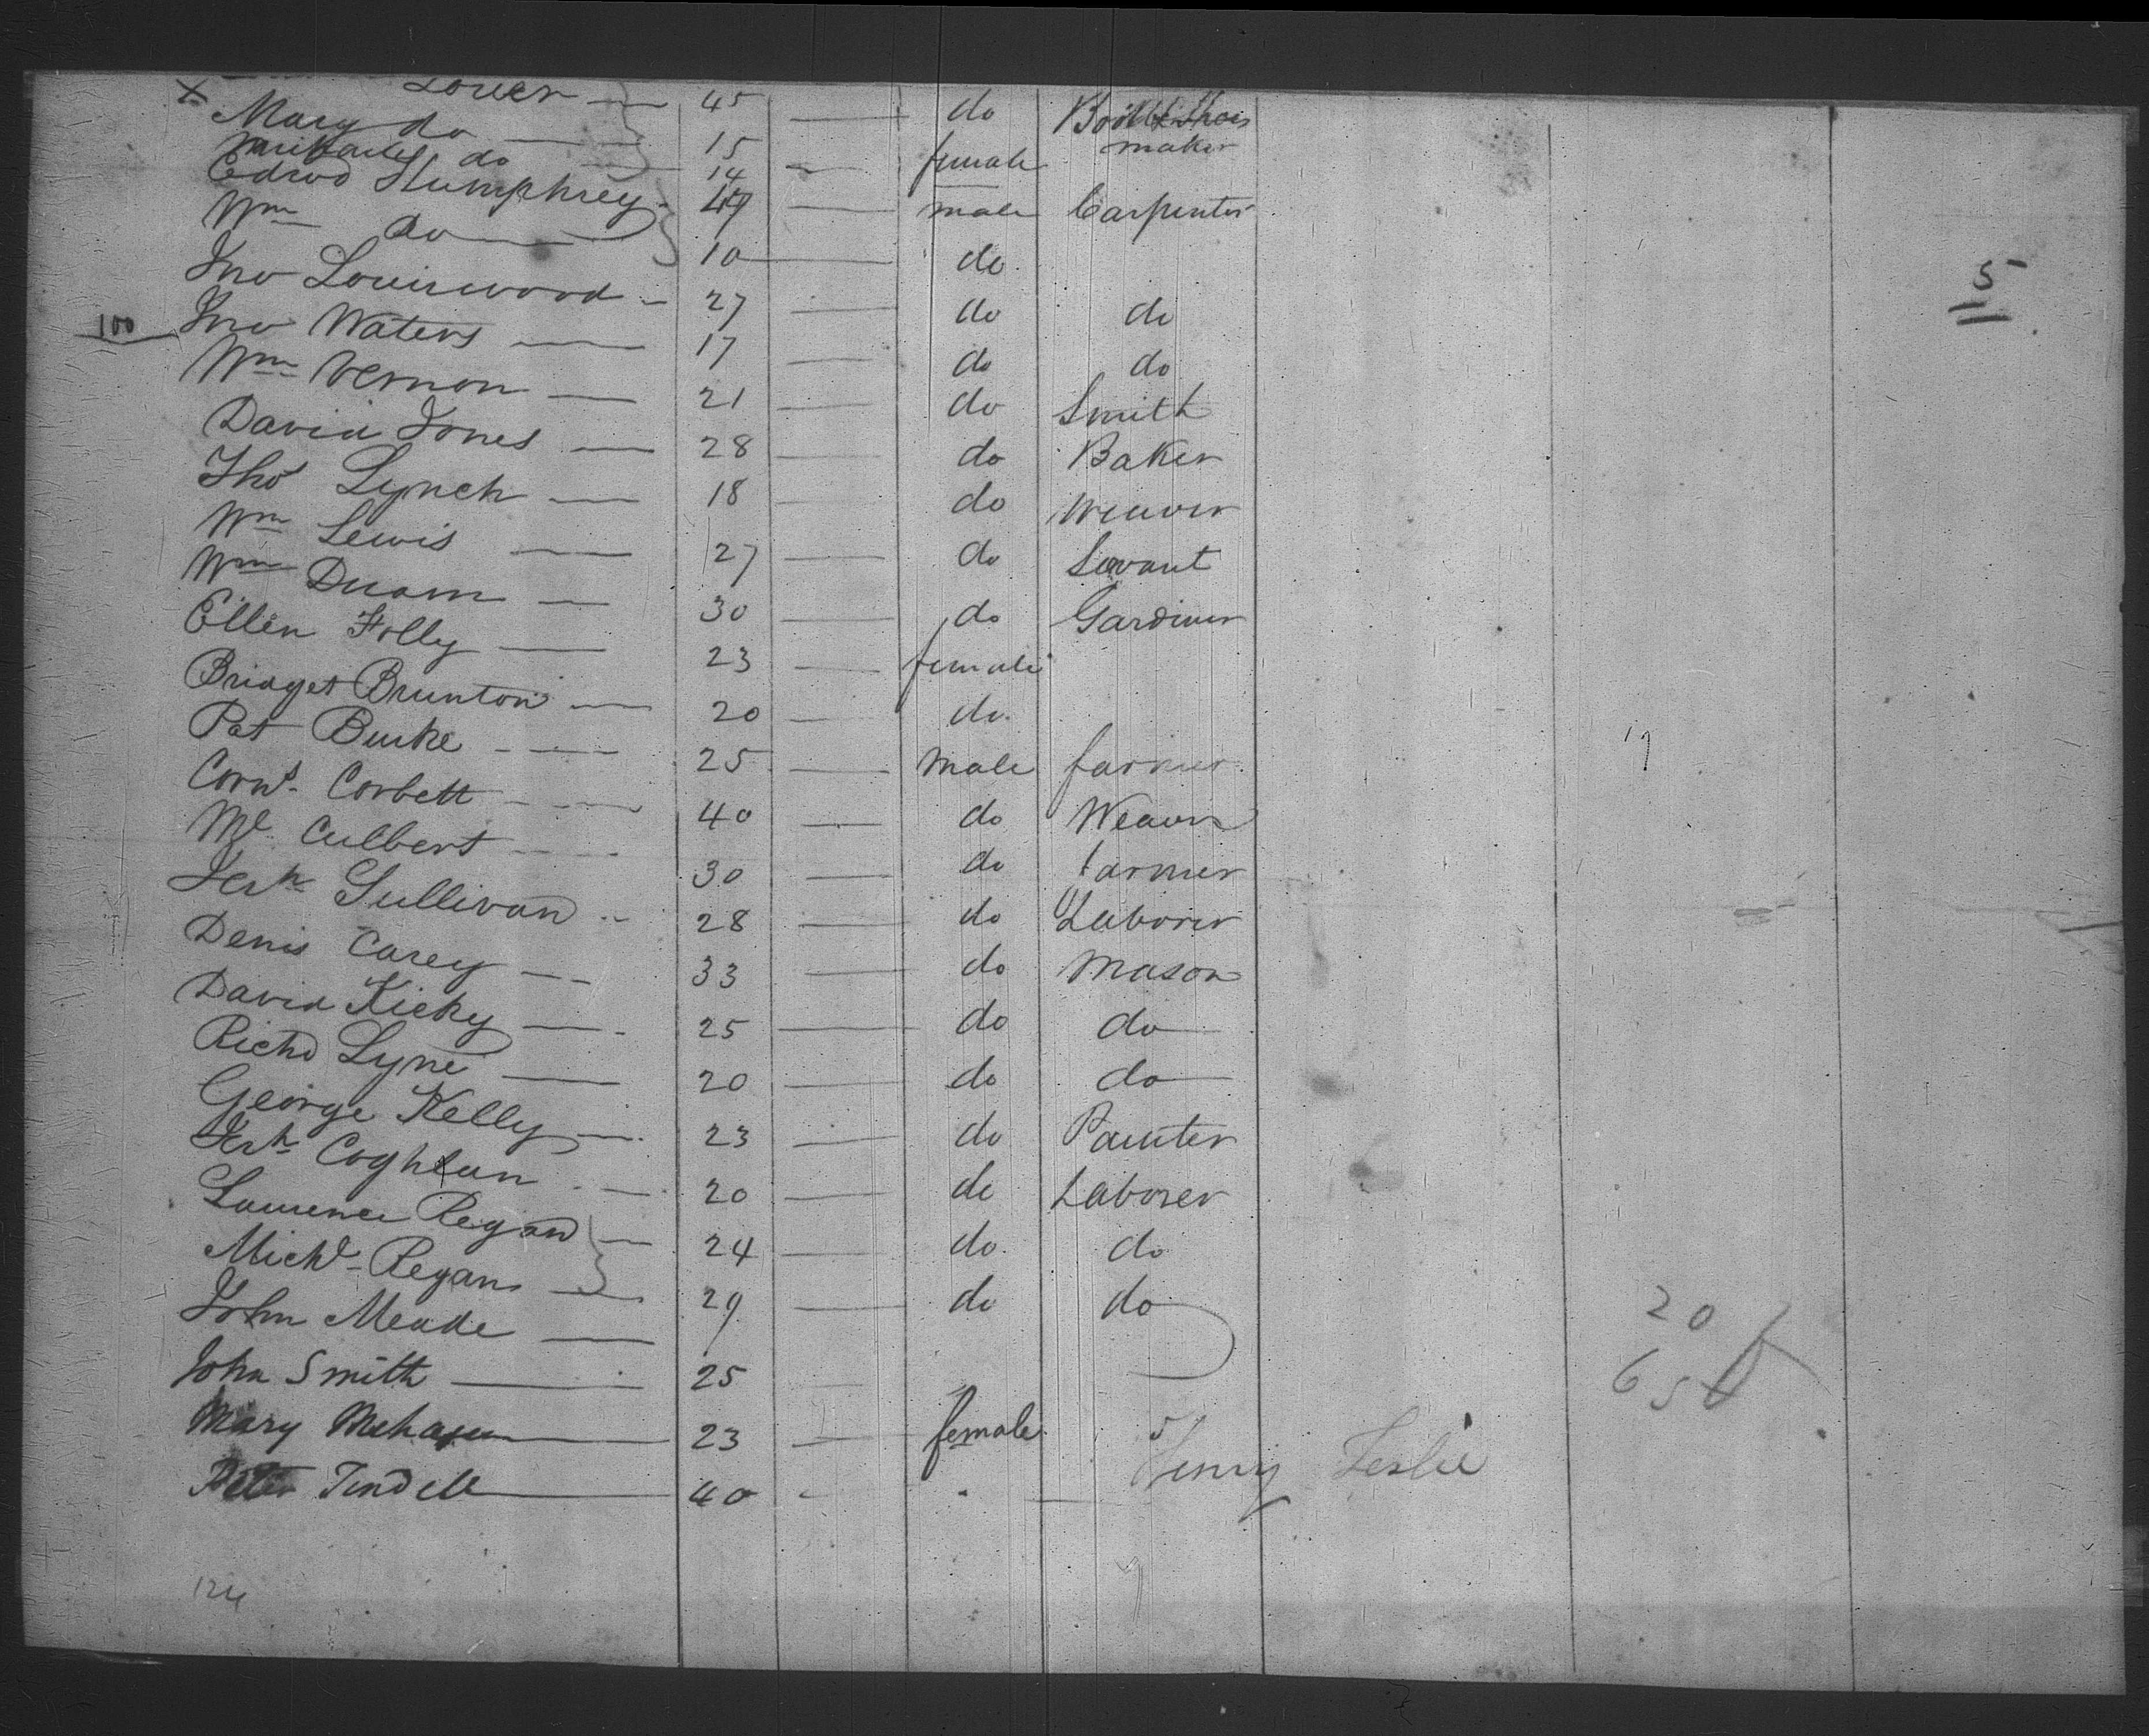 x Lower 45 do Boot & Shoe
Mary do 15 female maker
Michael do 14
Edwd Humphrey 49 male Carpenter
Wm do 10 do
Jno Louiswood 27 do do
100 Jno Waters 17 do do
Wm Vernon 21 do Smith
David Jones 28 do Baker
Thos Lynch 18 do Weaver
Wm Lewis 27 do Servant
Wm Duam 30 do Gardiner
Ellen Folly 23 female
Bridget Brunton 20 do
Pat Burke 25 male farmer
Corns. Corbett 40 do Weaver
Ml Culbert 30 do farmer
Jerh Sullivan 28 do Laborer
Denis Carey 33 do Mason
David Hickey 25 do do
Richd Lyne 20 do do
George Kelly 23 do Painter
Jerh Coghlan 20 do Laborer
Laurence Regan 24 do do
Michl Regan 29 do do
John Meade
John Smith 25
Mary Mehagen 23 female
Peter Tindell 40
124
5
20
65
Henry Leslie